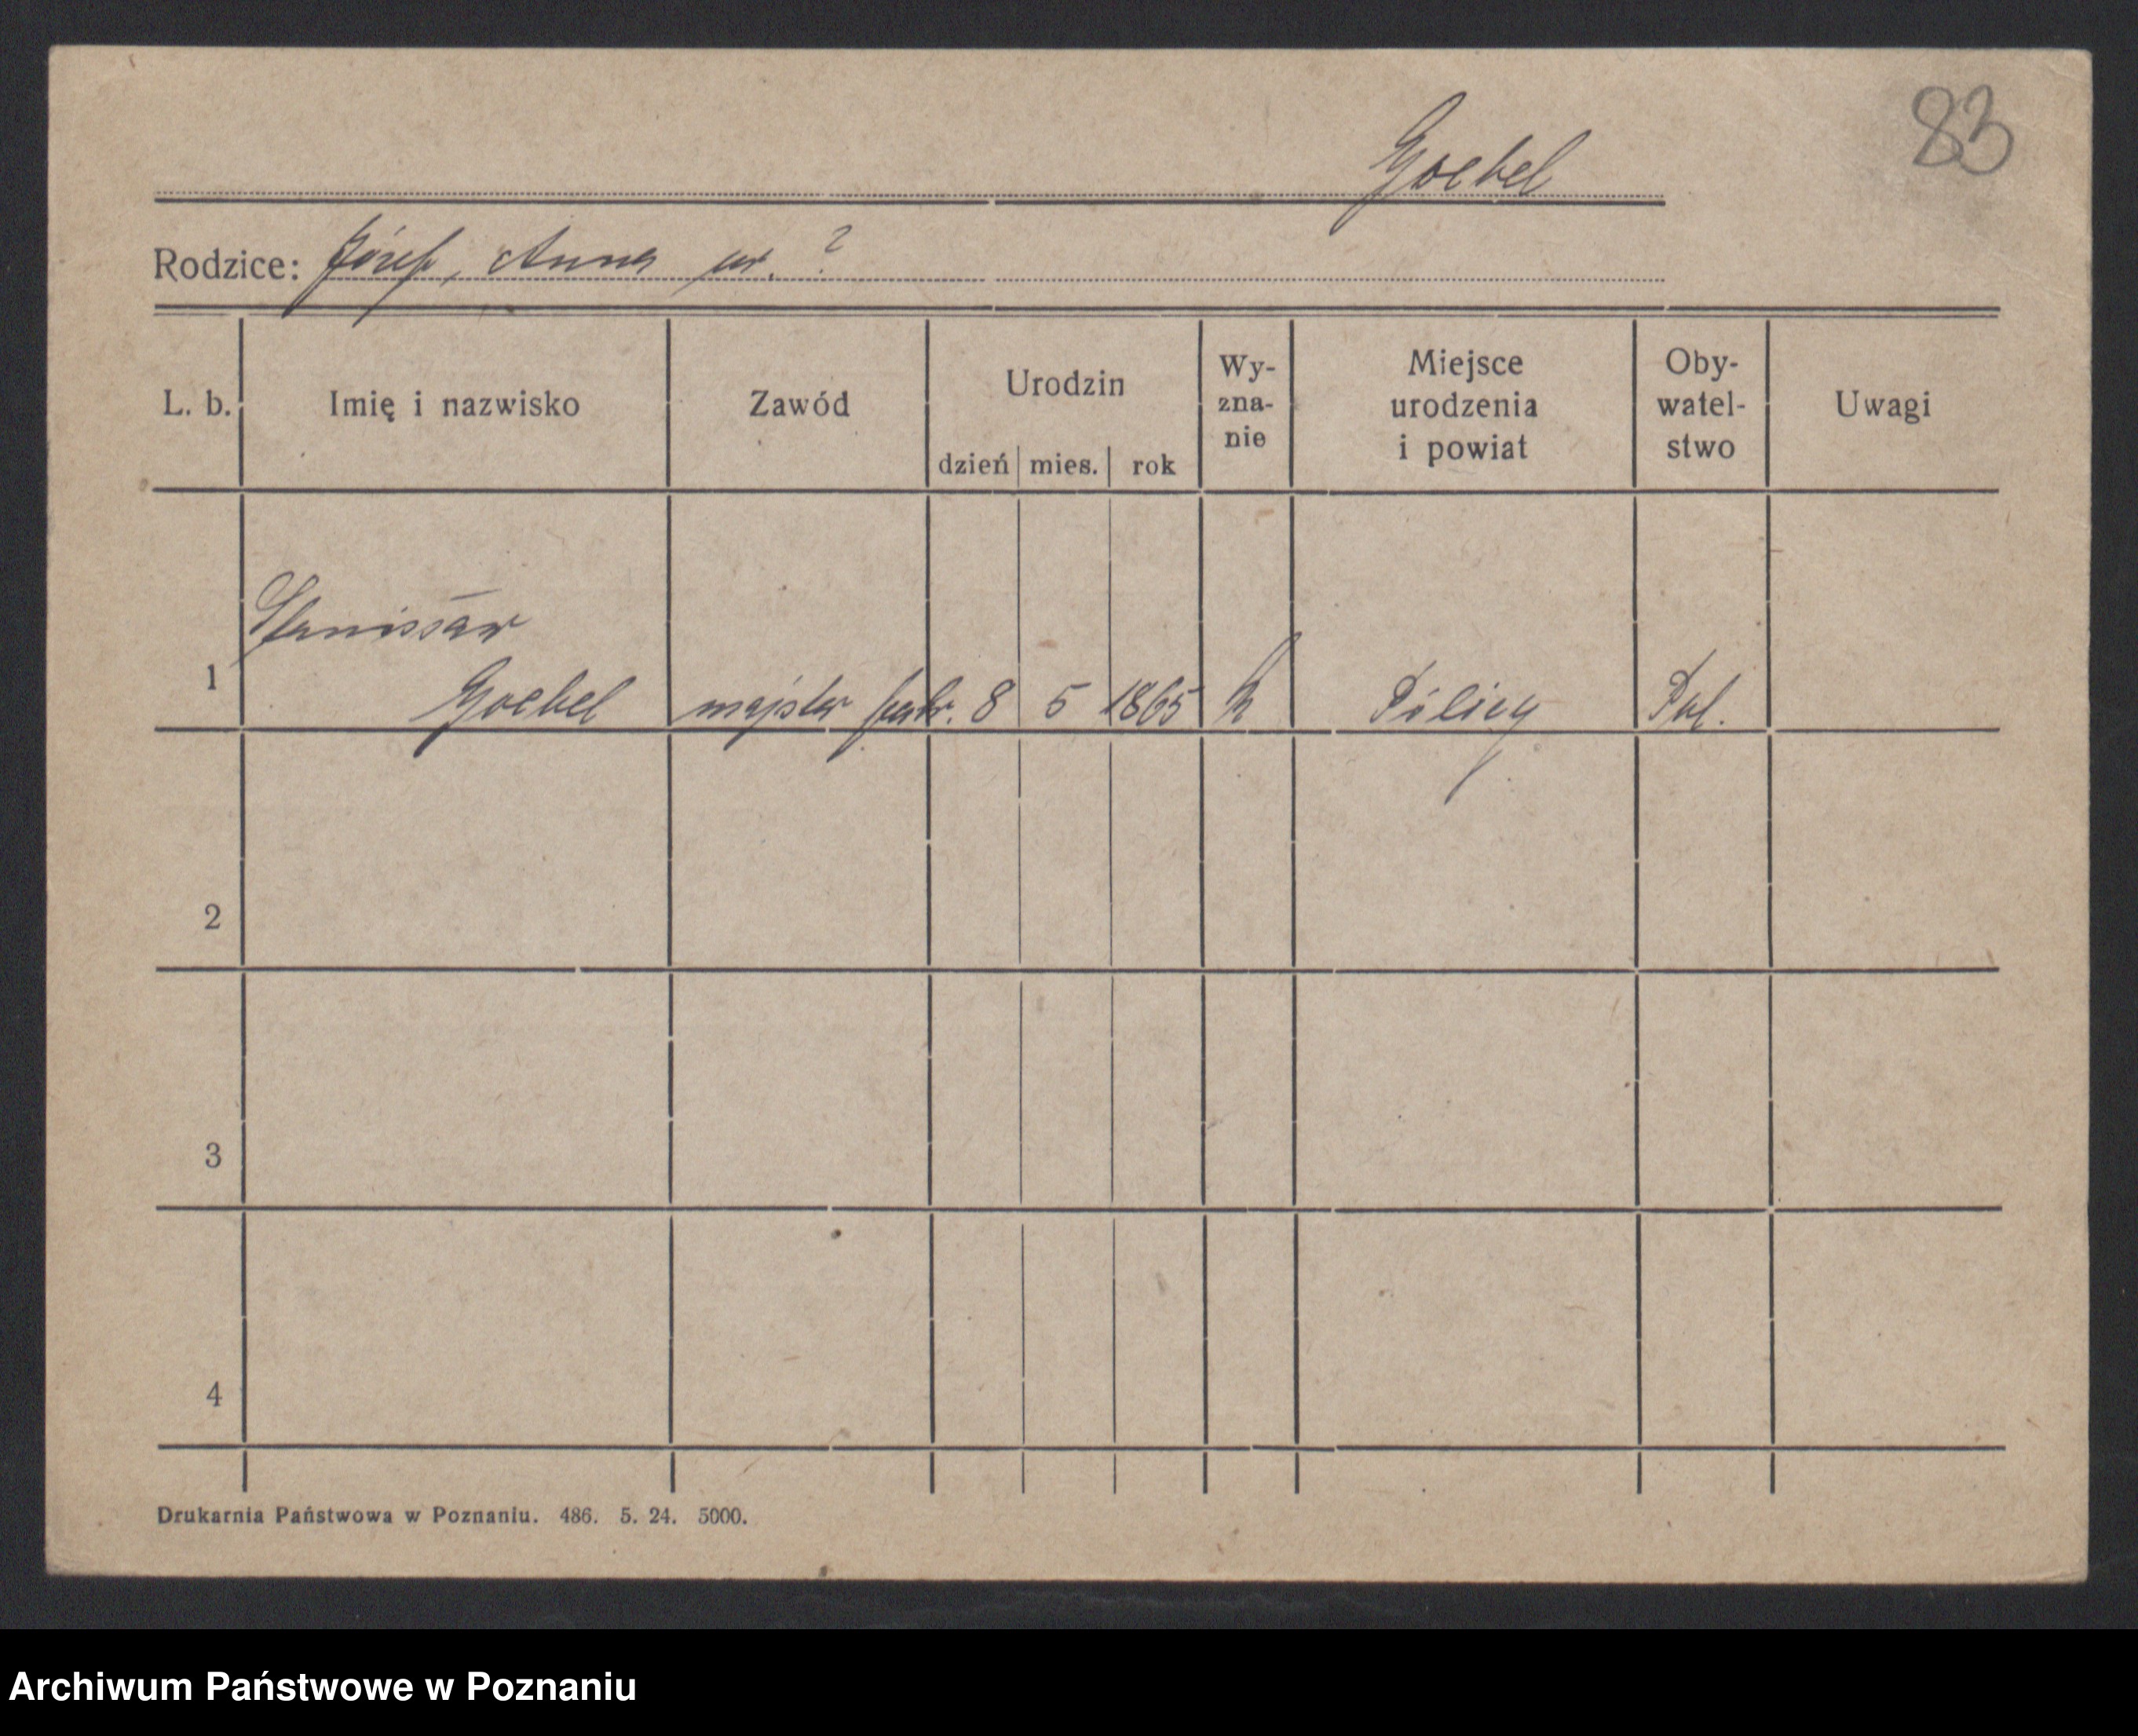 83
Goebel
Rodzice: Józef, Anna ur. ?
L. b. Imię i nazwisko Zawód Urodzin dzień mies. rok Wy-zna-nie Miejsce urodzenia i powiat Oby-watel-stwo Uwagi
Stanisław
1 Goebel majster fabr. 8 5 1865 k Pol.
2
3
4
Drukarnia Państwowa w Poznaniu. 486. 5. 24. 5000.
Archiwum Państwowe w Poznaniu